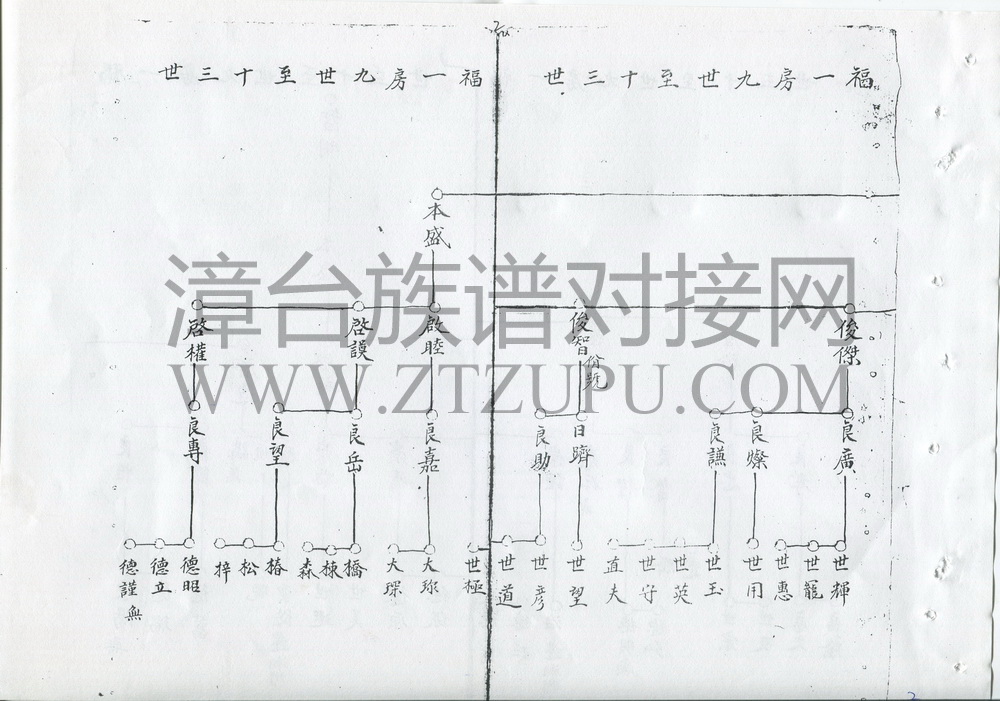 福一房九世至十三世
福一房九世至十三世
本盛
俊傑
俊智
啓睦
啓謨
啓權
良廣
良燦
良謙
日躋
良助
良嘉
良岳
良望
良專
世輝
世寵
世惠
世用
世玉
世英
世守
直夫
世望
世彦
世道
世極
大琛
橋
棟
森
椿
松
梓
德昭
德立
德謹無
漳台族谱对接网
WWW.ZTZUPU.COM